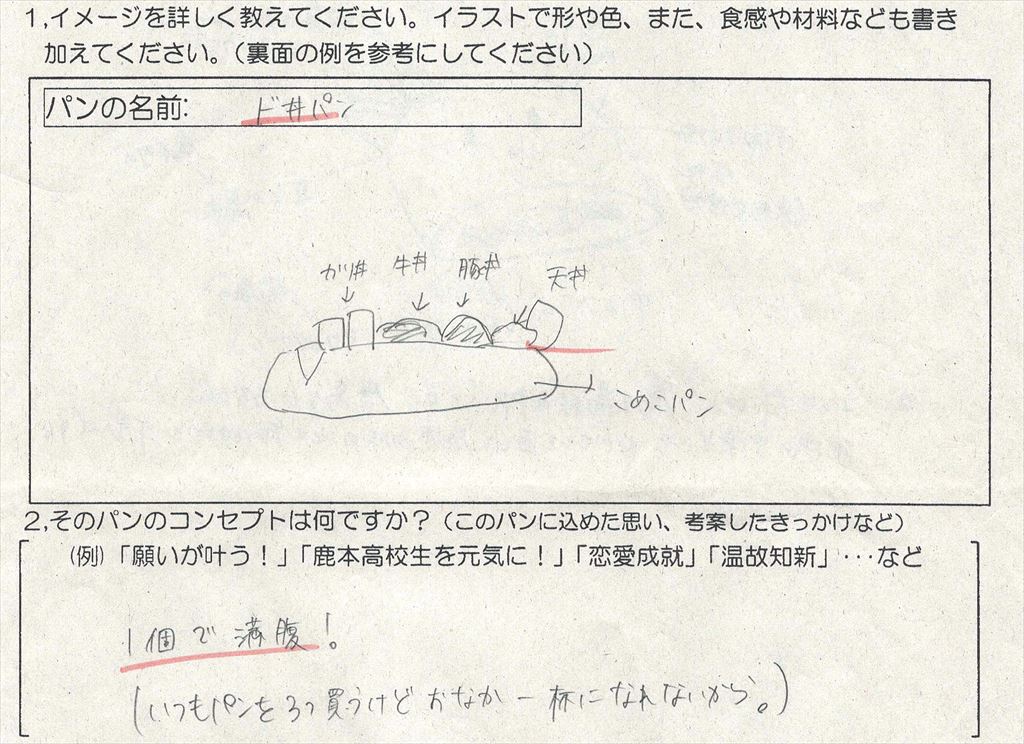 1,イメージを詳しく教えてください。イラストで形や色、また、食感や材料なども書き
加えてください。(裏面の例を参考にしてください)
パンの名前: ド丼パン
カツ丼 牛丼 豚丼 天丼
こめこパン
2,そのパンのコンセプトは何ですか?(このパンに込めた思い、考案したきっかけなど)
(例)「願いが叶う!」「鹿本高校生を元気に!」「恋愛成就」「温故知新」・・・など
1個で満腹!
(いつもパンを3つ買うけどおなか一杯になれないから。)